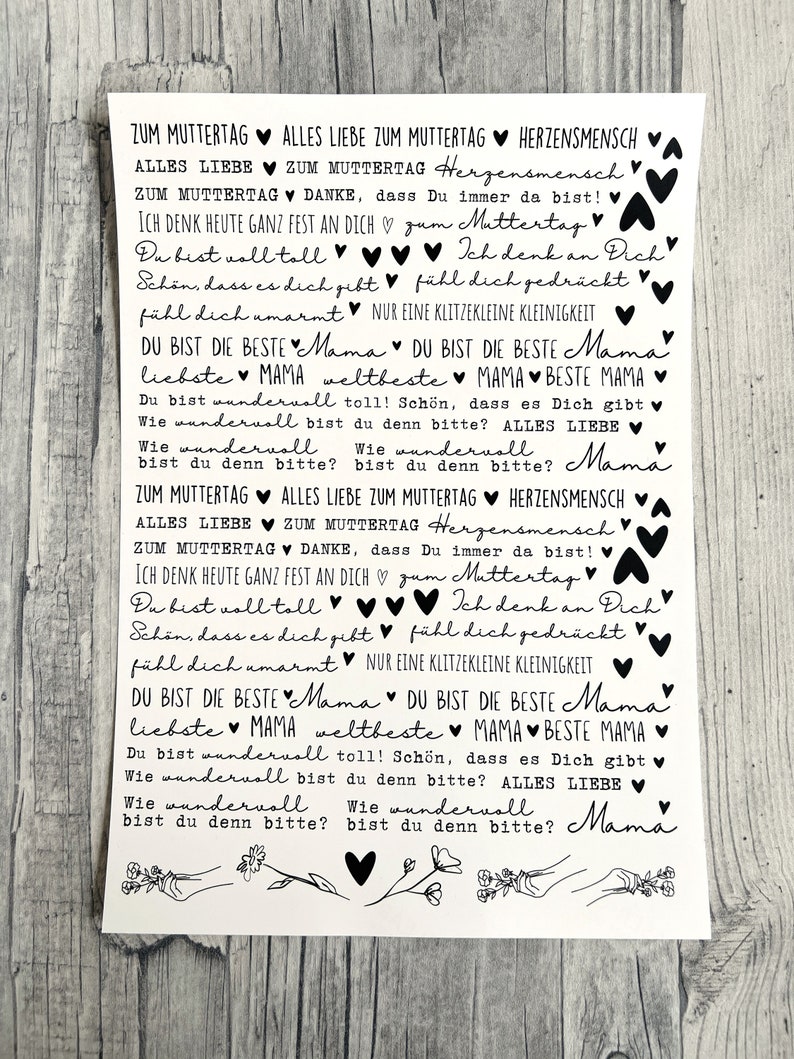 ZUM MUTTERTAG ALLES LIEBE ZUM MUTTERTAG HERZENSMENSCH
ALLES LIEBE ZUM MUTTERTAG Herzensmensch
ZUM MUTTERTAG DANKE, dass Du immer da bist!
ICH DENK HEUTE GANZ FEST AN DICH zum Muttertag
Du bist voll toll Ich denk an Dich
Schön, dass es dich gibt fühl dich gedrückt
fühl dich umarmt NUR EINE KLITZEKLEINE KLEINIGKEIT
DU BIST DIE BESTE Mama DU BIST DIE BESTE Mama
liebste MAMA weltbeste MAMA BESTE MAMA
Du bist wundervoll toll! Schön, dass es Dich gibt
Wie wundervoll bist du denn bitte? ALLES LIEBE
Wie wundervoll Wie wundervoll
bist du denn bitte? bist du denn bitte? Mama
ZUM MUTTERTAG ALLES LIEBE ZUM MUTTERTAG HERZENSMENSCH
ALLES LIEBE ZUM MUTTERTAG Herzensmensch
ZUM MUTTERTAG DANKE, dass Du immer da bist!
ICH DENK HEUTE GANZ FEST AN DICH zum Muttertag
Du bist voll toll Ich denk an Dich
Schön, dass es dich gibt fühl dich gedrückt
fühl dich umarmt NUR EINE KLITZEKLEINE KLEINIGKEIT
DU BIST DIE BESTE Mama DU BIST DIE BESTE Mama
liebste MAMA weltbeste MAMA BESTE MAMA
Du bist wundervoll toll! Schön, dass es Dich gibt
Wie wundervoll bist du denn bitte? ALLES LIEBE
Wie wundervoll Wie wundervoll
bist du denn bitte? bist du denn bitte? Mama